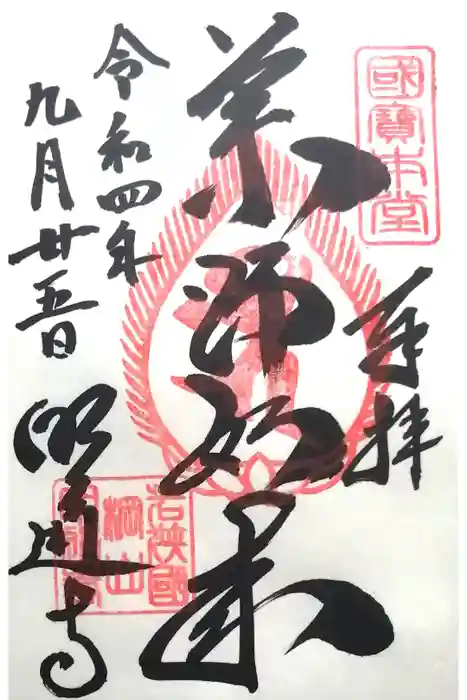 國寶本堂
奉拝
薬師如来
若狭國
棡山
明通寺
令和四年
九月廿五日
明通寺